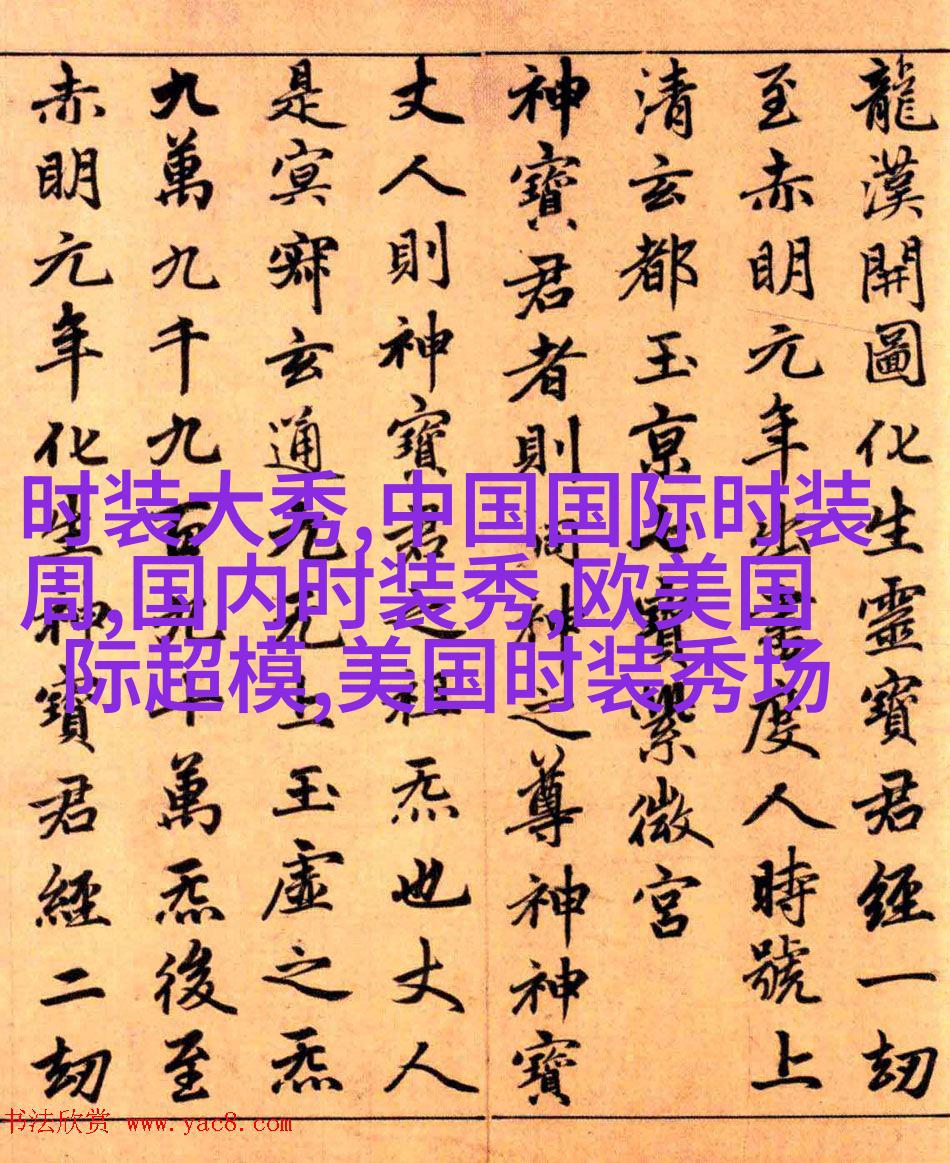 龍漢開圖化生靈寶君經一劫
至赤明元年出書度人時號上
清玄都玉京七寶紫微宮
神寶君者則洞神之尊神神寶
丈人則神寶君之祖炁也丈人
是冥寂玄通元无上玉虛之炁
九萬九千九百九十萬炁後至
赤明元年化生神寶君經二劫
时装大秀,中国国际时装
周,国内时装秀,欧美国
际超模,美国时装秀场
书法欣赏 www.yac8.com